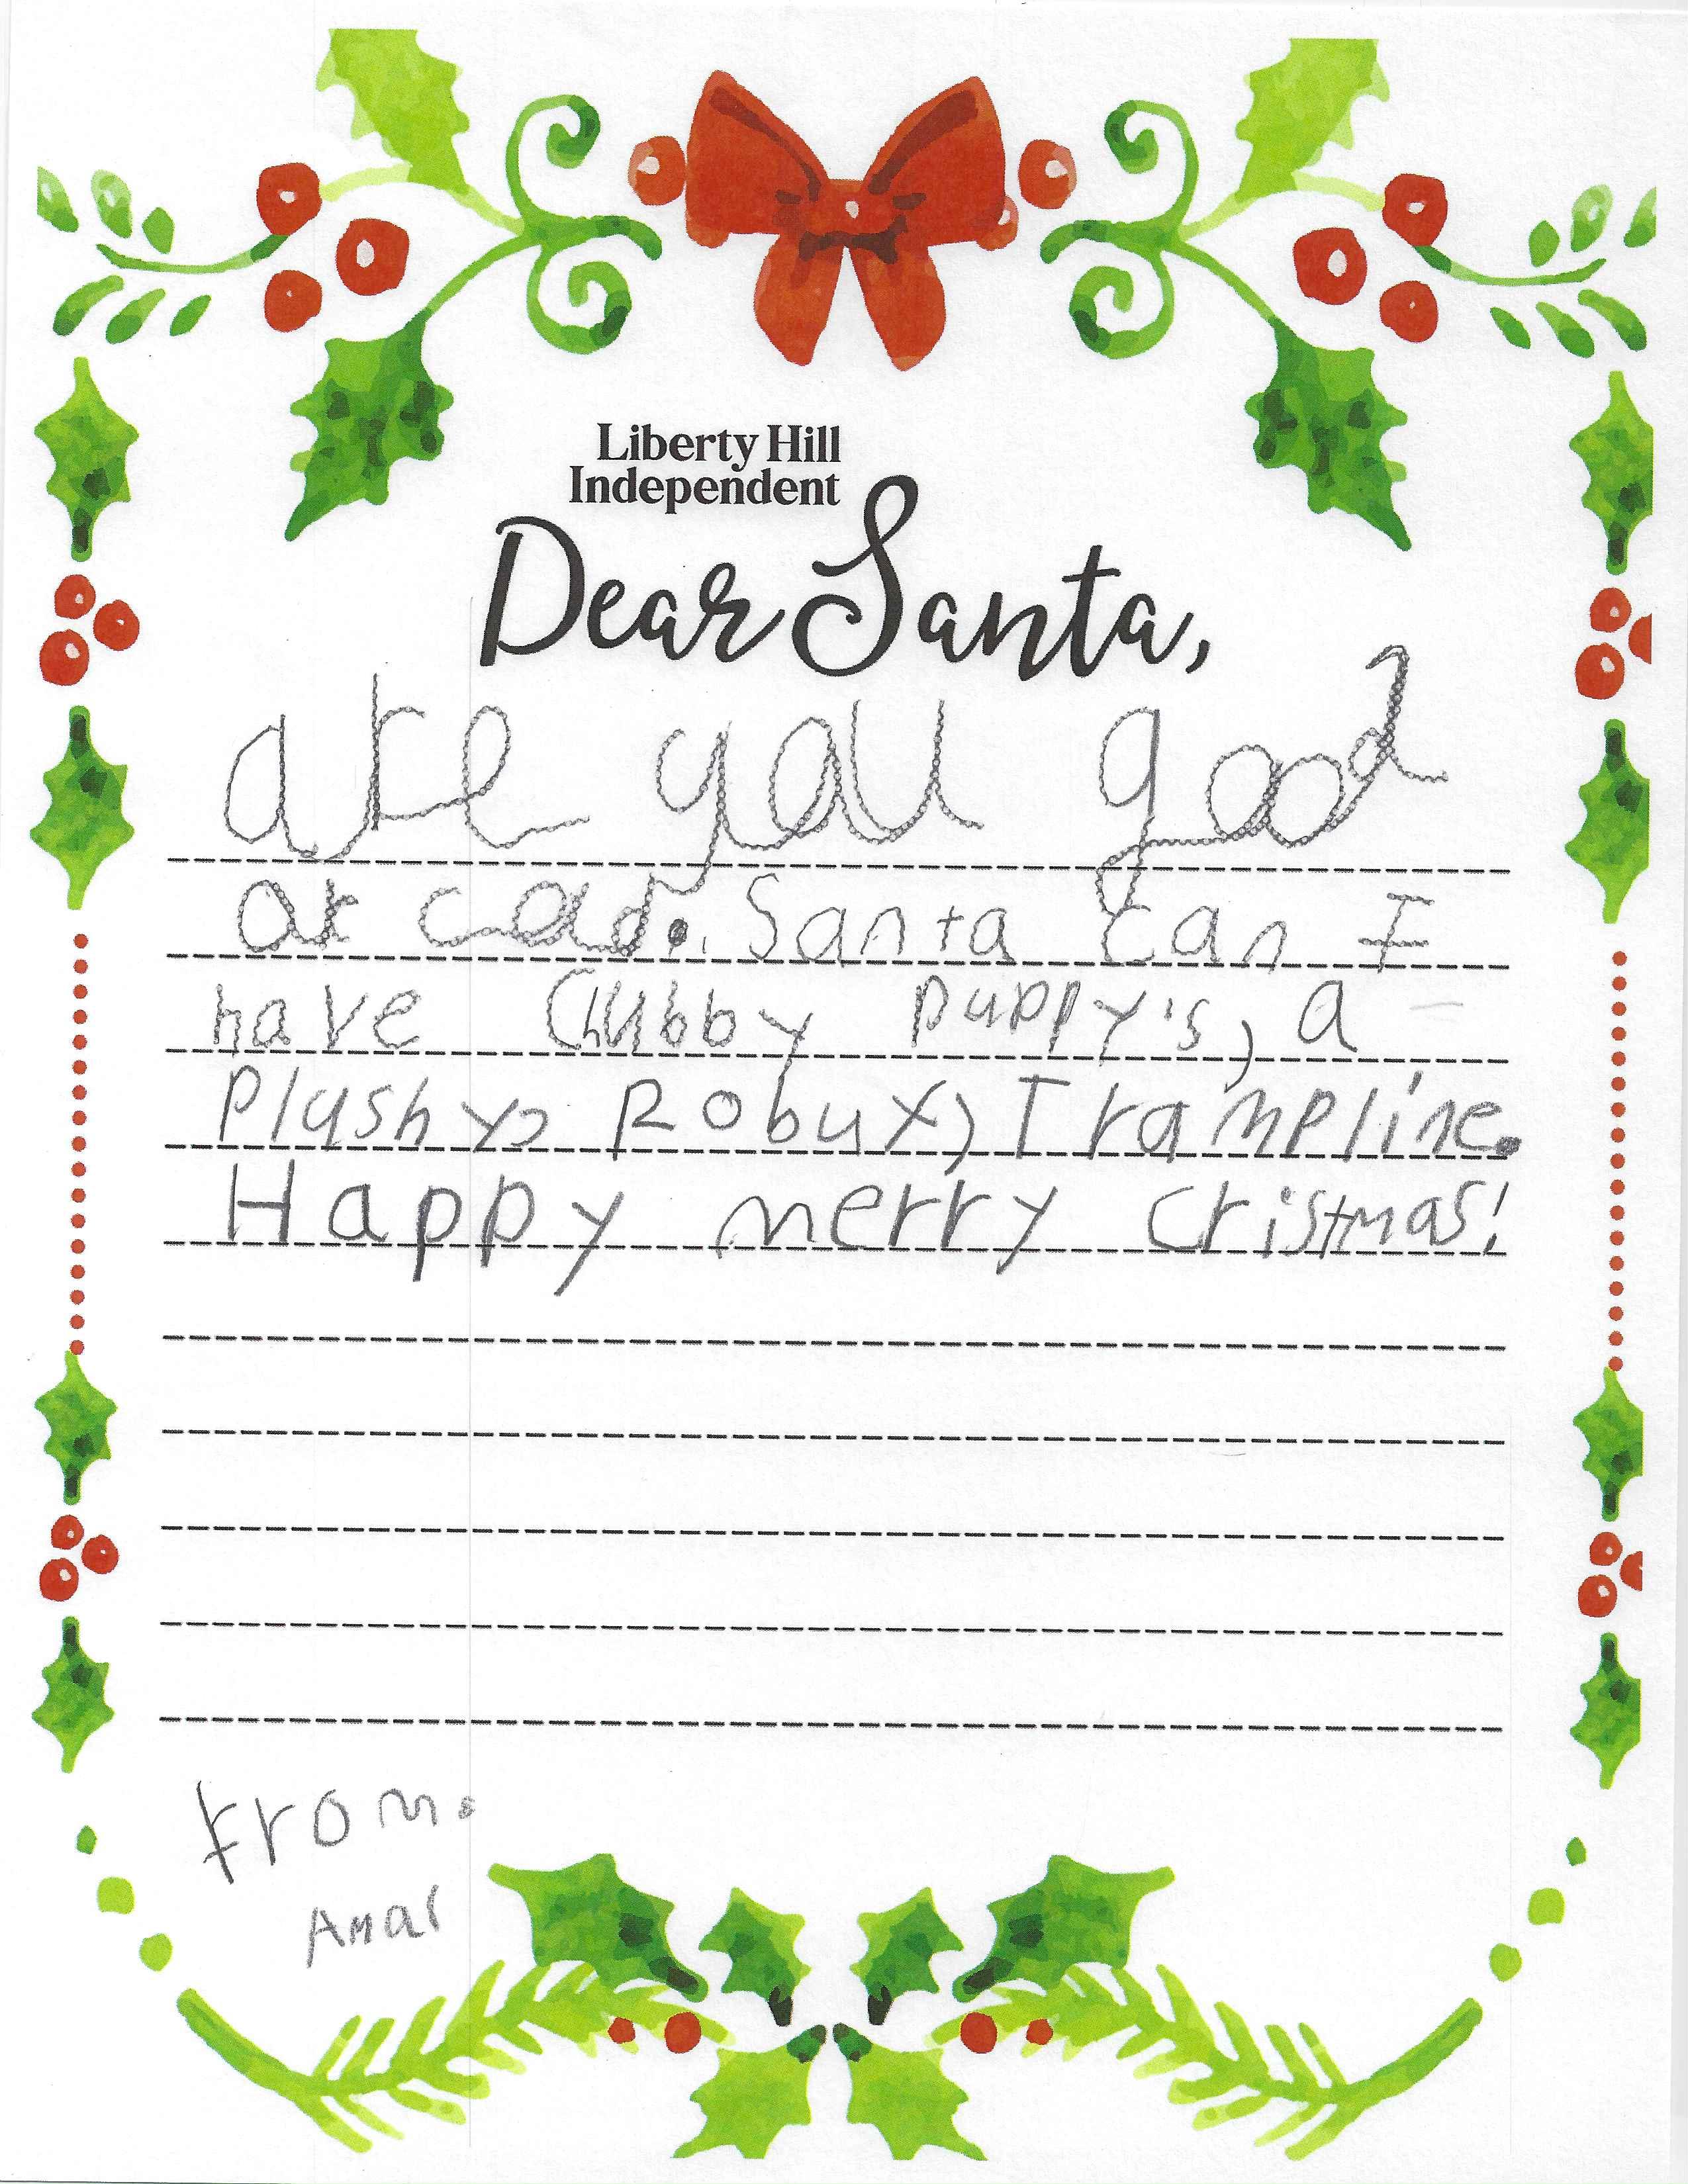 Liberty Hill
Independent
Dear Santa,
are you good
or cad. Santa can I
have Chubby puppy's, a
Plushy, Robux, Trampline.
Happy merry cristmas!
from.
Amar